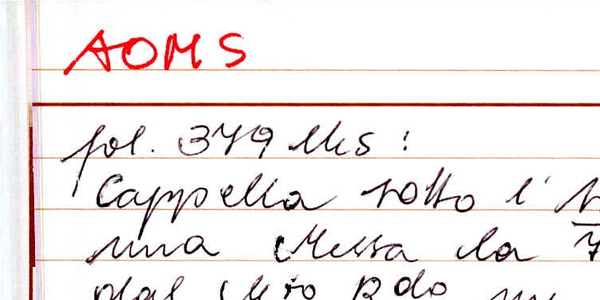 AOMS
fol. 379 Ms :
Cappella sotto l'
una Messa la
dal Mto Rdo